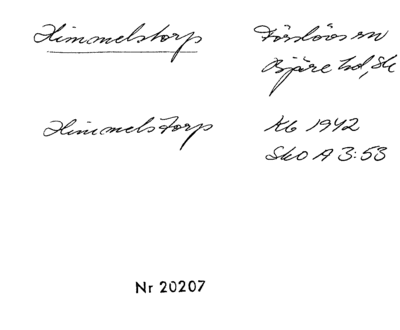 Himmelstorp
Förslövs sn
Bjäre hd, Sk
Himmelstorp
Kb 1942
SkO A 3:53
Nr 20207